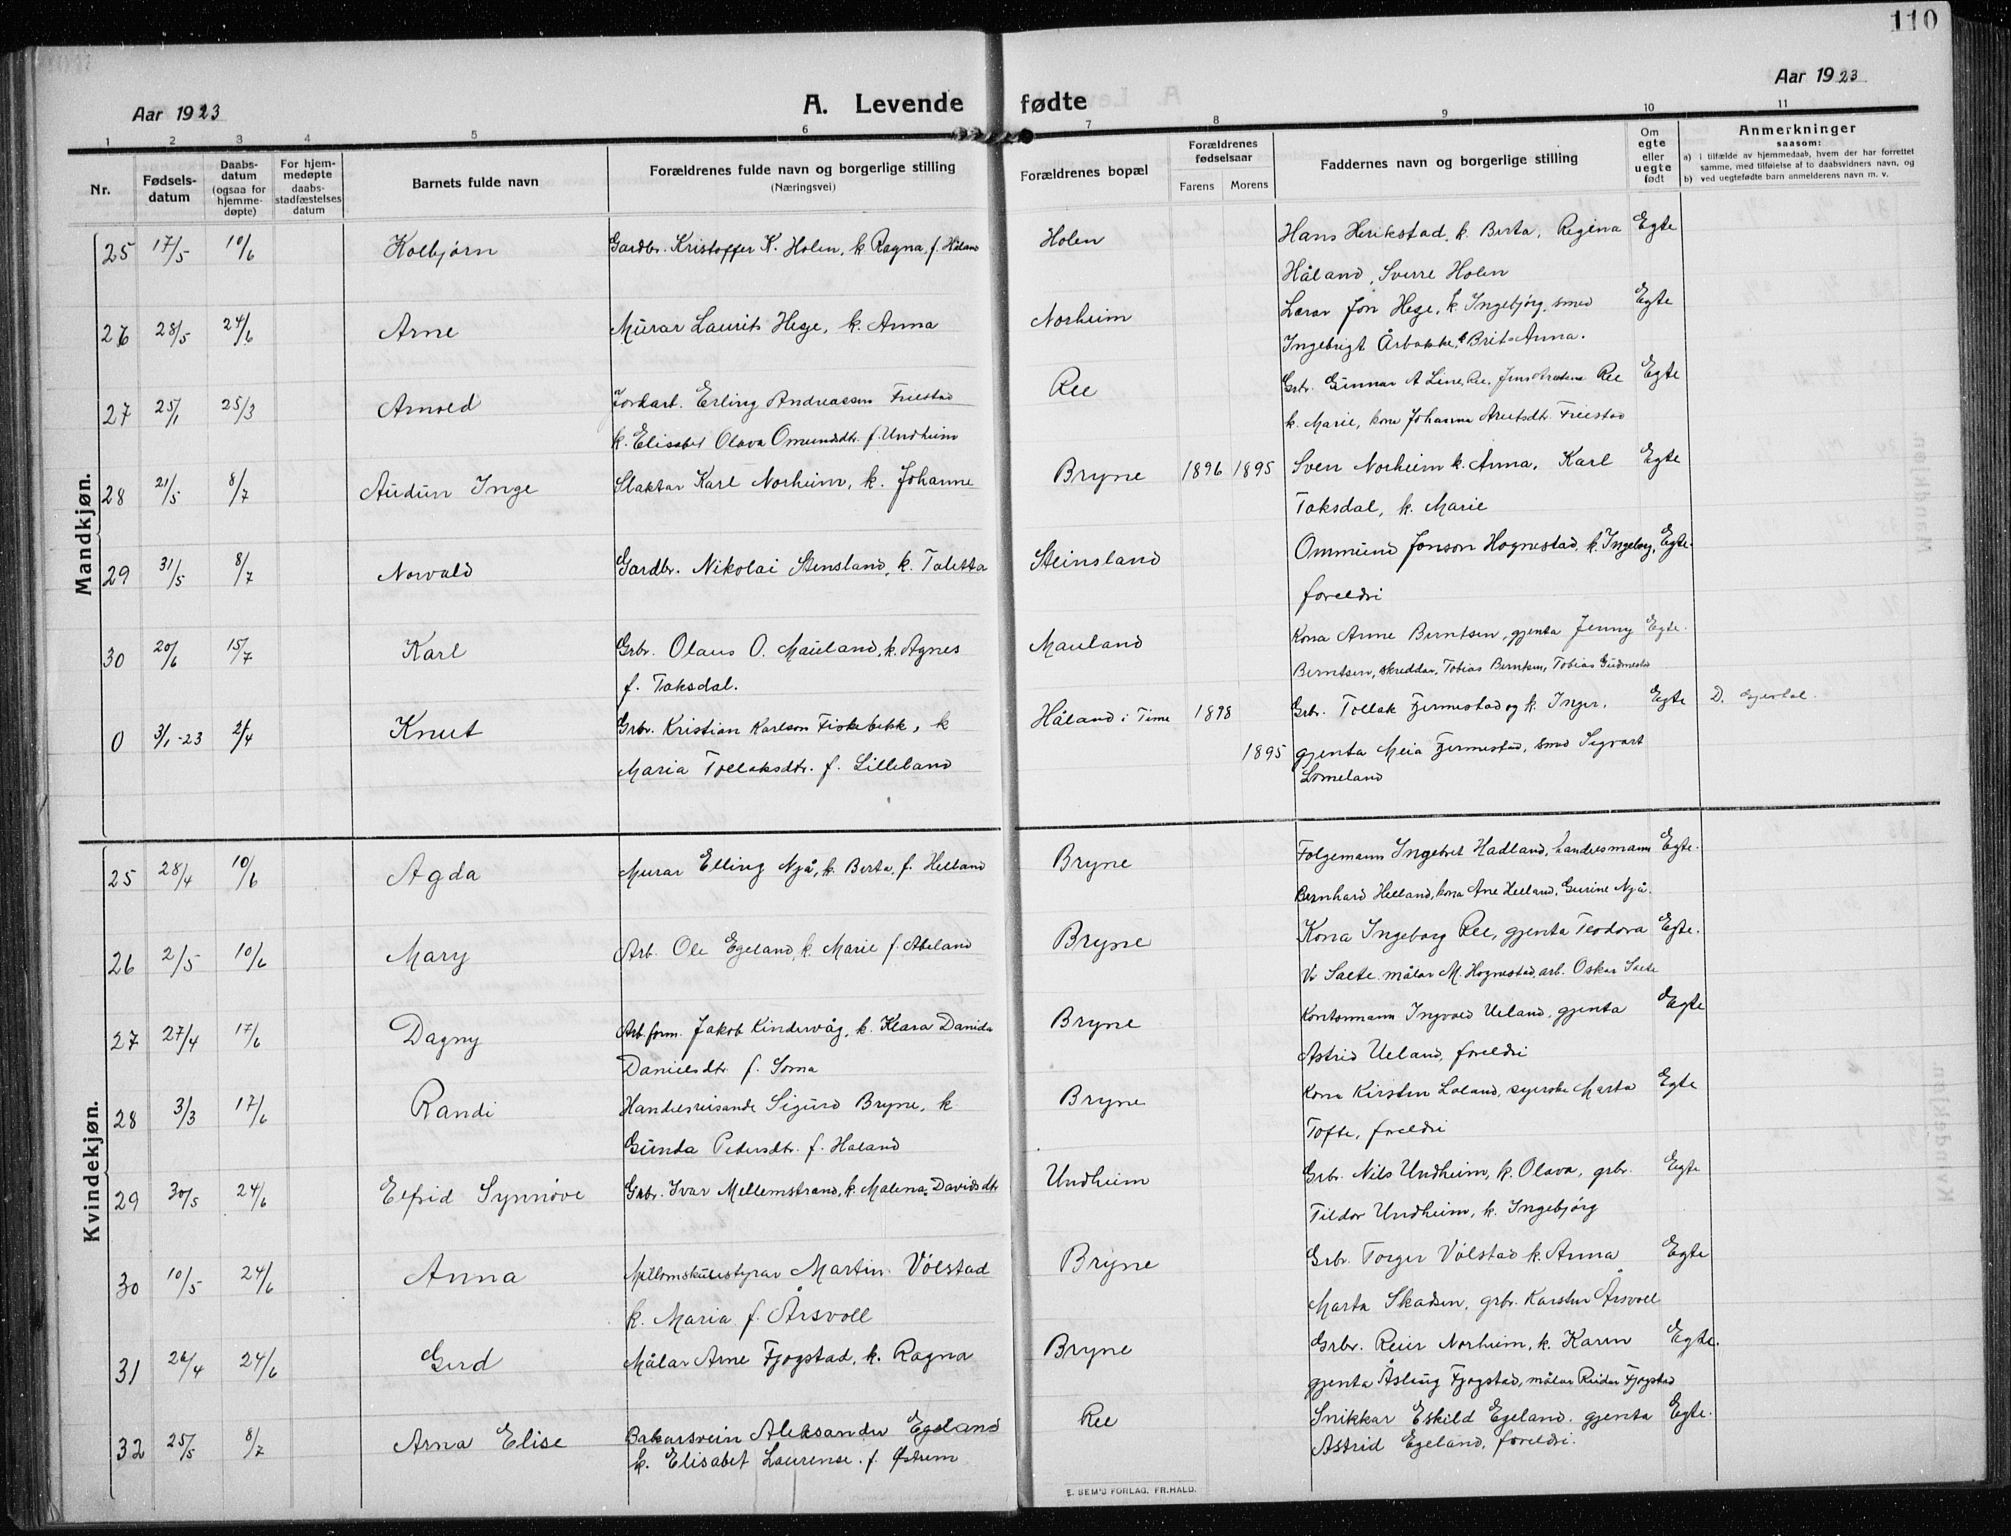 110
Aar 1923
A. Levende fødte
Aar 1923
1 2 3 4 5 6 7 8 9 10 11
Nr.
Fødsels-
datum
Daabs-
datum
(ogsaa for
hjemme-
døpte)
For hjem-
medøpte
daabs-
stadfæstelses
datum
Barnets fulde navn
Forældrenes fulde navn og borgerlige stilling
(Næringsvei)
Forældrenes bopæl
Forældrenes
fødselsaar
Farens Morens
Faddernes navn og borgerlige stilling
Om
egte
eller
uegte
født
Anmerkninger
saasom:
a) i tilfælde av hjemmedaab, hvem der har forrettet
samme, med tilføielse af to daabsvidners navn, og
b) ved uegtefødte barn anmelderens navn m. v.
Mandkjøn.
25 17/5 10/6 Kolbjørn Gardbr. Kristoffer K. Holen, k. Ragna, f. Håland Holen Hans Herikstad, k. Berta, Regina Egte
Håland, Sverre Holen
26 28/5 24/6 Arne Murar Laurits Hege, k. Anna Norheim Lærar Jon Hege, k Ingebjørg, smed Egte
Ingebrigt Årbakke, k Brit-Anna.
27 25/1 25/3 Arnold Jordarb. Erling Andreassen Friestad Ree Grb. Gunnar A Line, Ree, Jens Ree Egte
k. Elisabet Olava Omundsdtr. f. Undheim k. Marie, kona Johanna Friestad
28 21/5 8/7 Audun Inge Slaktar Karl Norheim, k. Johanne Bryne 1896 1895 Sven Norheim k. Anna, Karl Egte
Taksdal, k. Marie
29 31/5 8/7 Norvald Gardbr. Nikolai Stensland, k. Taletta Steinsland Ommund Jonson Hognestad, k. Ingeborg, Egte.
foreldri
30 20/6 15/7 Karl Grbr. Olaus O. Mauland, k. Agnes Mauland Kona Anne Berntsen, gjenta Jenny Egte.
f. Taksdal. Berntsen, skreddar, Tobias Berntsen, Tobias Gudmestad
0 3/1-23 2/4 Knut Grbr. Kristian Karlson Fiskebekk, k Håland i Time 1898 Grb. Tollak Fjermestad og k. Inger, Egte D.
Maria Tollaksdtr. f. Lilleland 1895 gjenta Meia Fjermestad, smed Sigvart
Lomeland
Kvindekjøn.
25 28/4 10/6 Agda Murar Elling Njå, k. Berta, f. Helland Bryne Folgemann Ingebret Hadland, handelsmann Egte.
Bernhard Helland, kona Ane Helland, Gurine Njå.
26 2/5 10/6 Mary Arb. Ole Egeland, k. Marie f. Abeland Bryne Kona Ingeborg Ree, gjenta Teodora Egte.
V. Salte målar M. Hognestad, arb. Oskar Salte
27 27/4 17/6 Dagny Arb.form. Jakob Kindervåg, k. Klara Danida Bryne Kontormann Ingvald Ueland, gjenta Egte
Danielsdtr f. Soma Astrid Ueland, foreldri
28 3/3 17/6 Randi Handelsreisande Sigurd Bryne, k Bryne Kona Kirsten Loland, syerske Marta Egte
Gunda Pedersdtr. f. Haland Tofte, foreldri
29 30/5 24/6 Elfrid Synnøve Grbr. Ivar Mellemstrand, k. Malena Davidsdtr Undheim Grbr. Nils Undheim, k. Olava, grbr. Egte
Tildor Undheim, k. Ingebjørg
30 10/5 24/6 Anna Millomskulestyrar Martin Vølstad Bryne Grbr Torger Vølstad k. Anna Egte
k. Maria f. Årsvoll Marta Skadsen, grbr. Karsten Årsvoll
31 26/4 24/6 Gerd Målar Arne Fjogstad, k. Ragna Bryne Grbr. Reier Norheim, k. Karen Egte.
gjenta Åslaug Fjogstad, målar Reidar Fjogstad
32 25/5 8/7 Arna Elise Bakarsvein Aleksander Egeland Ree Snikkar Eskild Egeland, gjenta Egte.
k. Elisabet Laurense. f. Østrem Astrid Egeland, foreldri.
E. SEM'S FORLAG, FR.HALD.